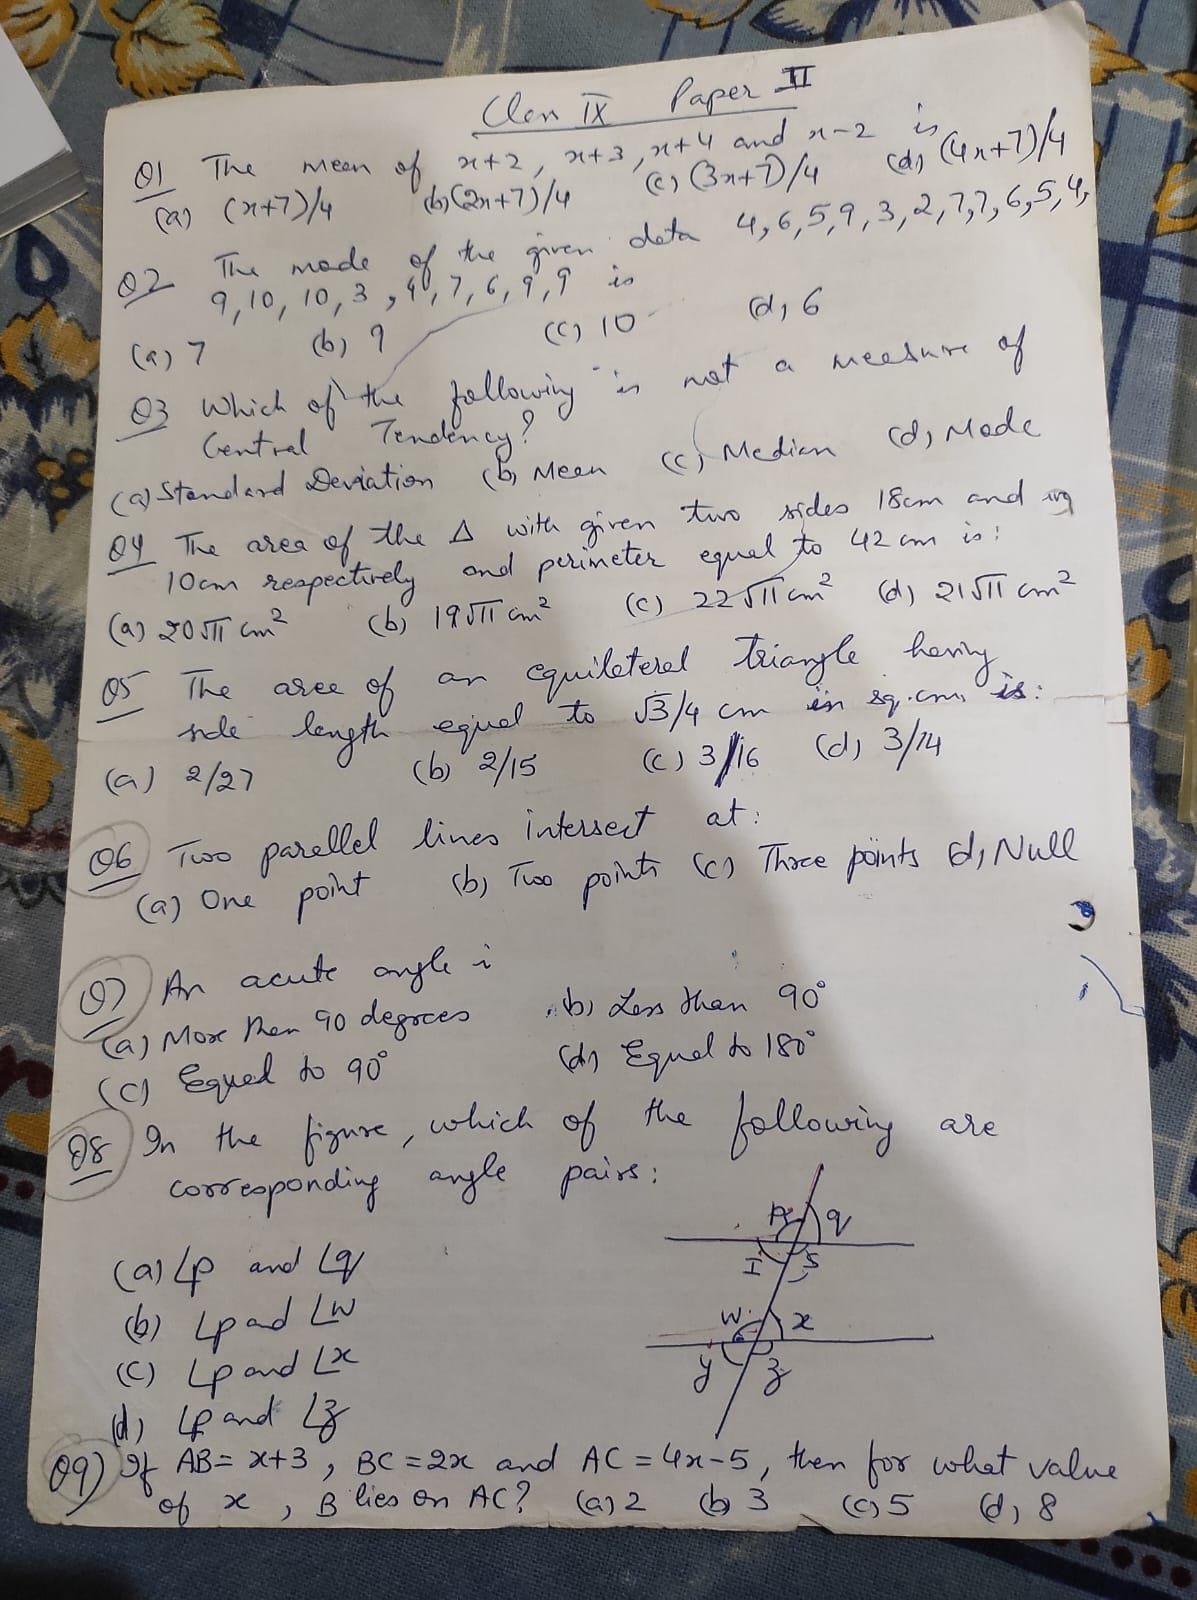 Class IX Paper II
Q1 The mean of x+2, x+3, x+4 and x-2 is
(a) (x+7)/4 (b) (2x+7)/4 (c) (3x+7)/4 (d) (4x+7)/4
Q2 The mode of the given data 4,6,5,9,3,2,7,7,6,5,4,
9,10,10,3,9,7,6,9,9 is
(a) 7 (b) 9 (c) 10 (d) 6
Q3 Which of the following is not a measure of
Central Tendency?
(a) Standard Deviation (b) Mean (c) Median (d) Mode
Q4 The area of the Δ with given two sides 18cm and
10cm respectively and perimeter equal to 42 cm is:
(a) 20√11 cm² (b) 19√11 cm² (c) 22√11 cm² (d) 21√11 cm²
Q5 The area of an equilateral triangle having
side length equal to √3/4 cm in sq.cm, is:
(a) 2/27 (b) 2/15 (c) 3/16 (d) 3/14
Q6 Two parellel lines intersect at:
(a) One point (b) Two points (c) Three points (d) Null
Q7 An acute angle is
(a) More than 90 degrees (b) Less than 90°
(c) Equal to 90° (d) Equal to 180°
Q8 In the figure, which of the following are
corresponding angle pairs:
q
(a) ∠p and ∠q
s
(b) ∠p and ∠w
w x
(c) ∠p and ∠x
y z
(d) ∠p and ∠z
Q9) If AB = x+3, BC = 2x and AC = 4x-5, then for what value
of x, B lies on AC? (a) 2 (b) 3 (c) 5 (d) 8